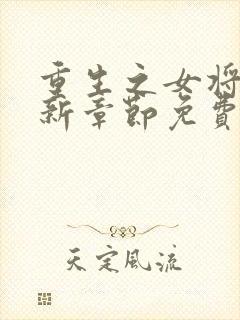 重生之女将
新章節免費
天定風流